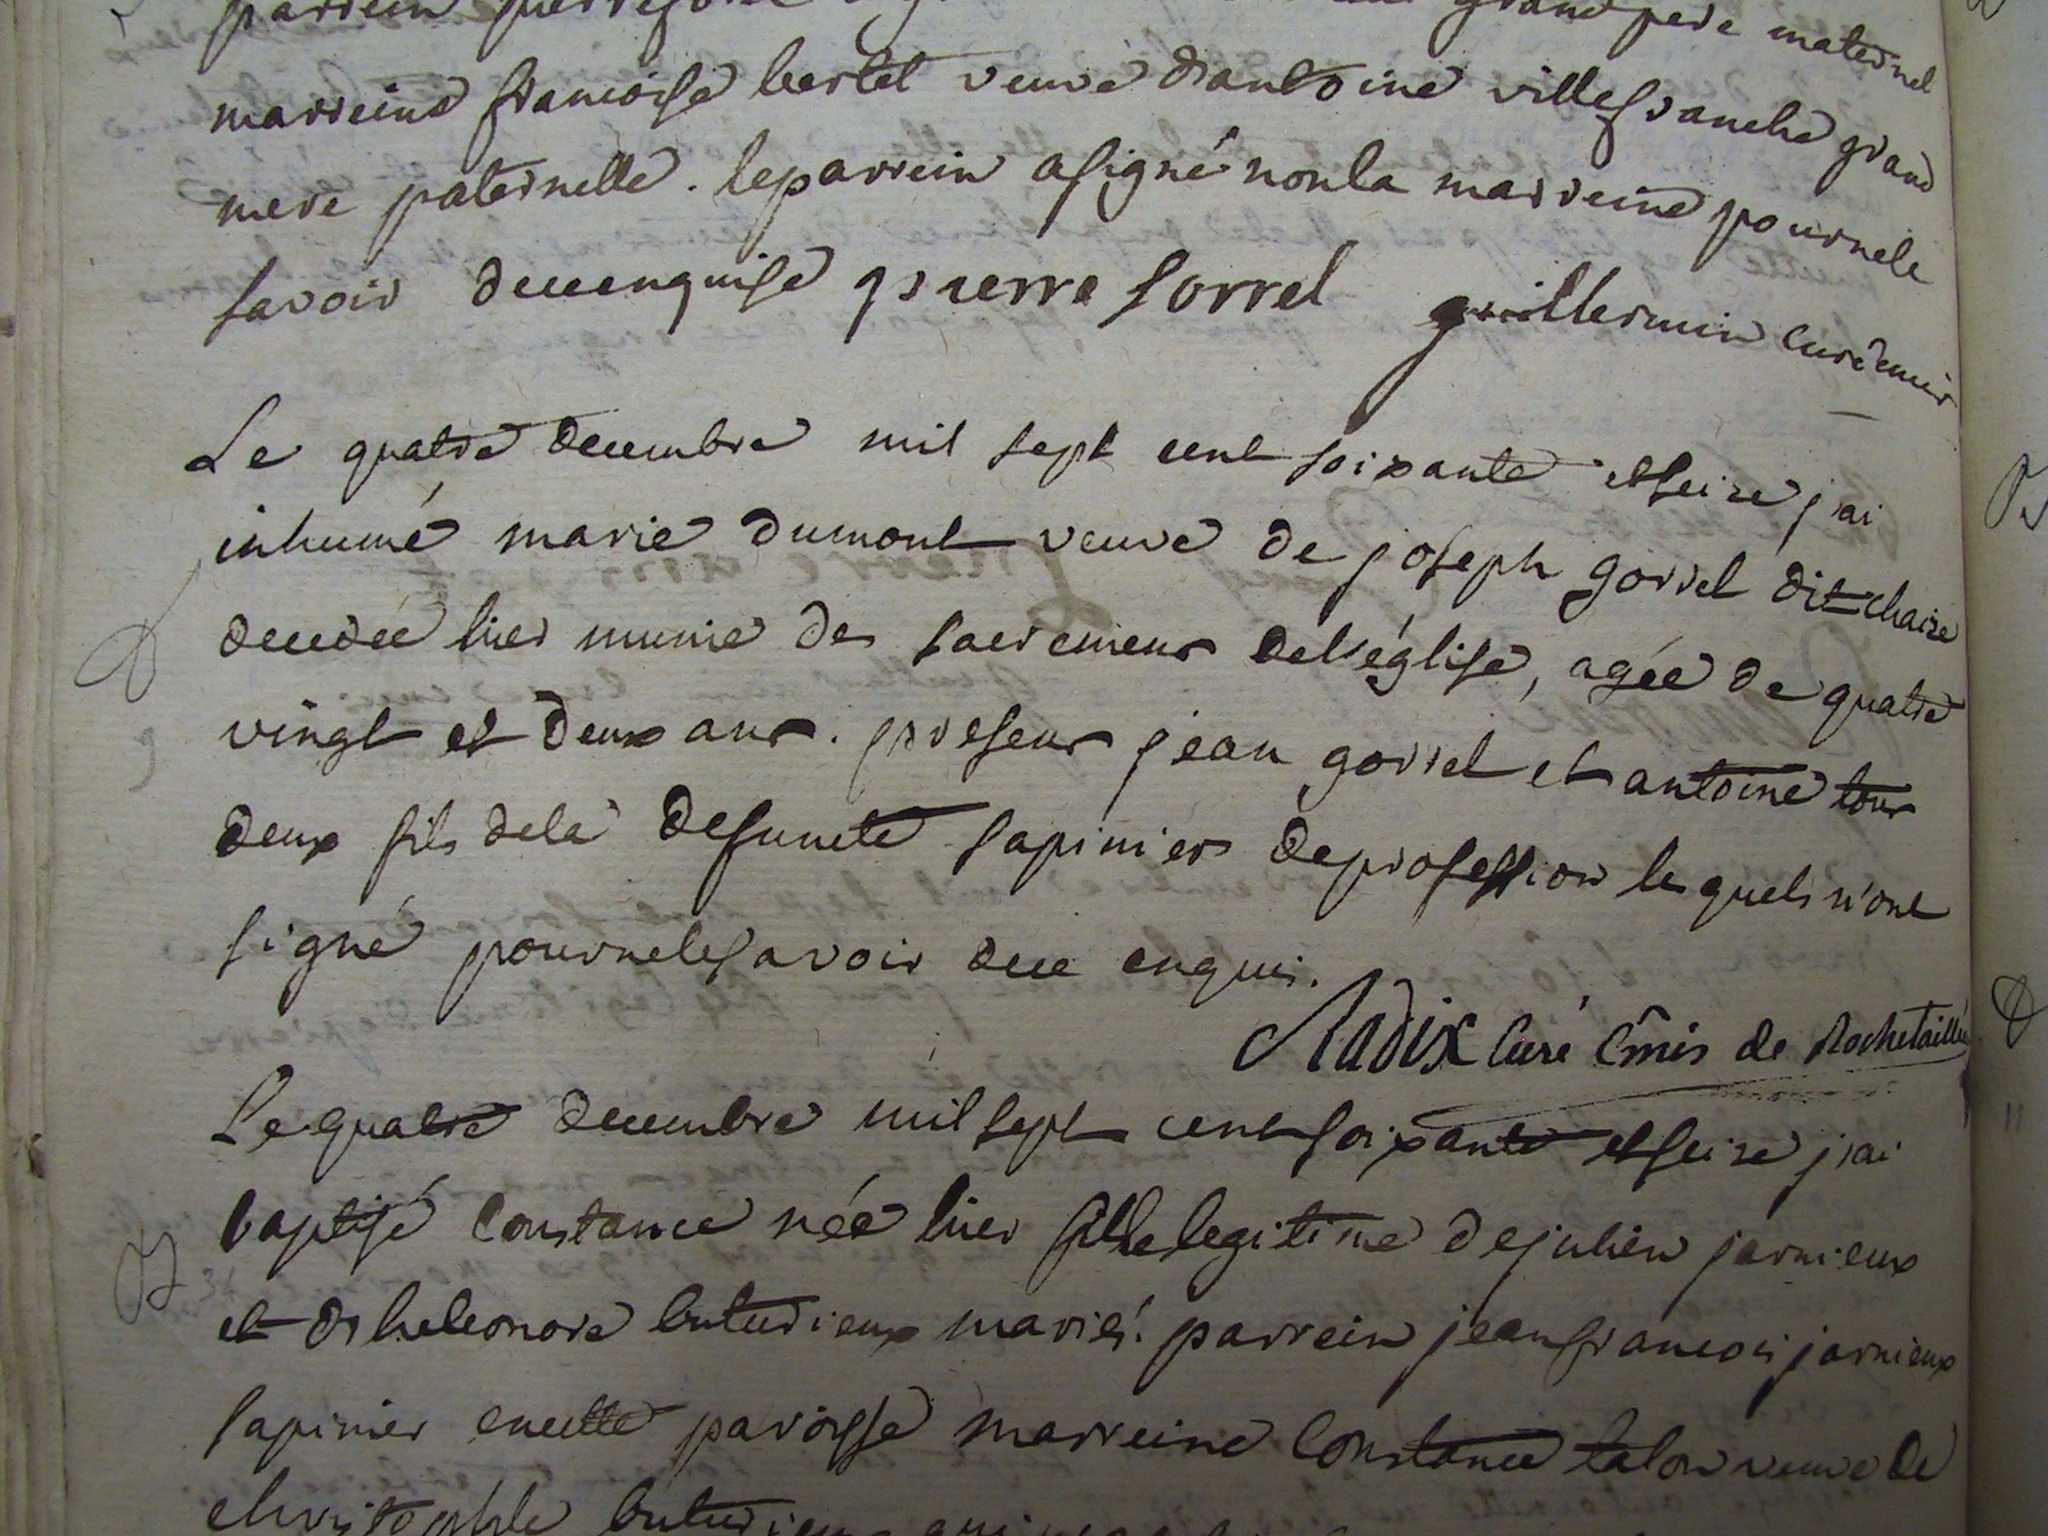 parrein pierre sorrel grand pere maternel
marreine francoise bertet veuve d'antoine villefranche grand
mere paternelle. le parrein a signé non la marreine pour ne le
savoir deue enquise pierre sorrel guillermin curé cmis
Le quatre decembre mil sept cent soixante et seize j'ai
inhumé marie dumont veuve de joseph gorrel dit chaize
decedée hier munie des sacremens de l'église, agée de quatre
vingt et deux ans. presens jean gorrel et antoine tous
deux fils de la defuncte sapiniers de profession lesquels n'ont
signé pour ne le savoir due enquis.
Radix Curé Cmis de Rochetaillée
Le quatre decembre mil sept cent soixante et seize j'ai
baptisé Constance née hier fille legitime de julien jarnieux
et d'heleonore buturieux mariés. parrein jean francois jarnieux
sapinier en cette paroisse marreine Constance talon veuve de
christophle buturieux